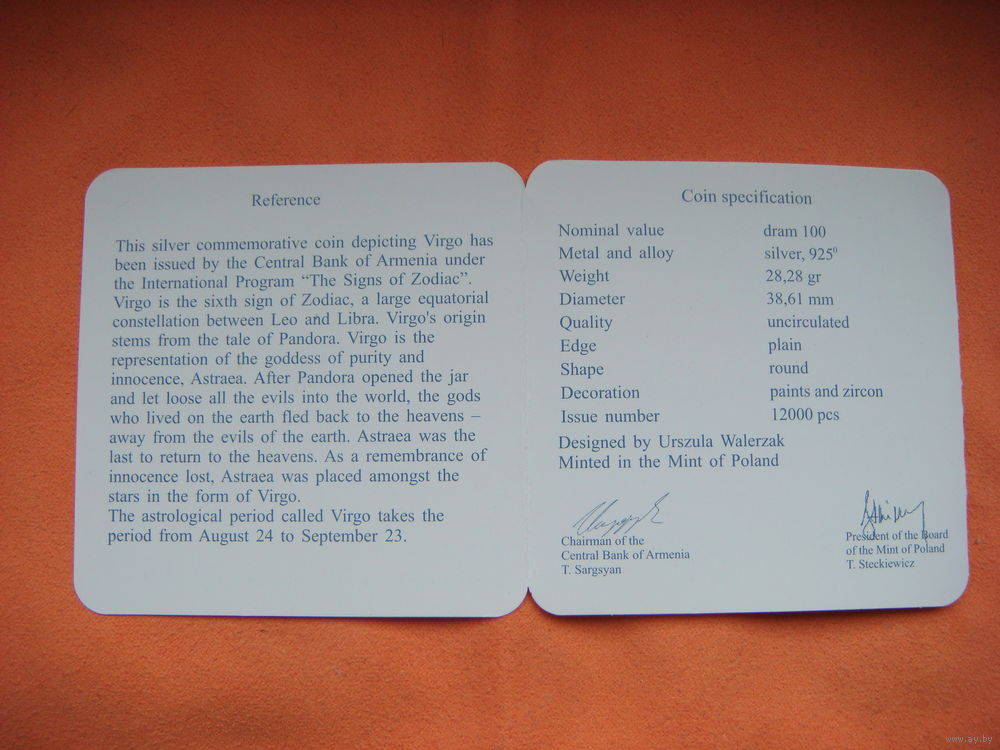 Reference
This silver commemorative coin depicting Virgo has
been issued by the Central Bank of Armenia under
the International Program “The Signs of Zodiac”.
Virgo is the sixth sign of Zodiac, a large equatorial
constellation between Leo and Libra. Virgo's origin
stems from the tale of Pandora. Virgo is the
representation of the goddess of purity and
innocence, Astraea. After Pandora opened the jar
and let loose all the evils into the world, the gods
who lived on the earth fled back to the heavens –
away from the evils of the earth. Astraea was the
last to return to the heavens. As a remembrance of
innocence lost, Astraea was placed amongst the
stars in the form of Virgo.
The astrological period called Virgo takes the
period from August 24 to September 23.
Coin specification
Nominal value dram 100
Metal and alloy silver, 925⁰
Weight 28,28 gr
Diameter 38,61 mm
Quality uncirculated
Edge plain
Shape round
Decoration paints and zircon
Issue number 12000 pcs
Designed by Urszula Walerzak
Minted in the Mint of Poland
Chairman of the
Central Bank of Armenia
T. Sargsyan
President of the Board
of the Mint of Poland
T. Steckiewicz
www.ay.by